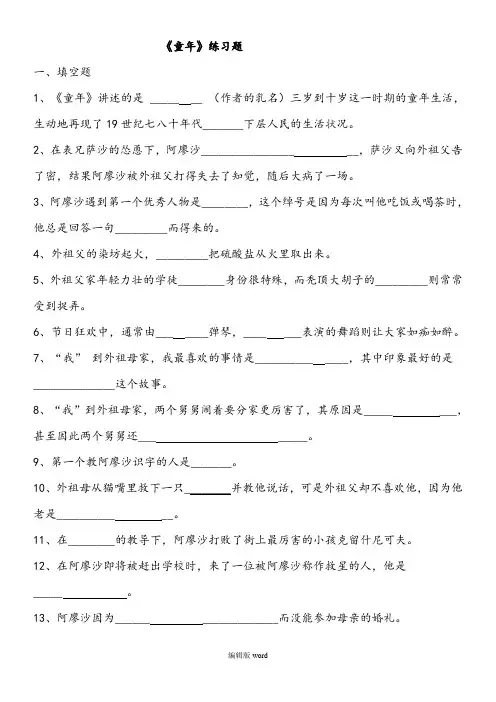 《童年》练习题
一、填空题
1、《童年》讲述的是 _______ （作者的乳名）三岁到十岁这一时期的童年生活，
生动地再现了19世纪七八十年代_______下层人民的生活状况。
2、在表兄萨沙的怂恿下，阿廖沙___________________________，萨沙又向外祖父告
了密，结果阿廖沙被外祖父打得失去了知觉，随后大病了一场。
3、阿廖沙遇到第一个优秀人物是________，这个绰号是因为每次叫他吃饭或喝茶时，
他总是回答一句_________而得来的。
4、外祖父的染坊起火，_________把硫酸盐从火里取出来。
5、外祖父家年轻力壮的学徒________身份很特殊，而秃顶大胡子的_________则常常
受到捉弄。
6、节日狂欢中，通常由_________弹琴，__________表演的舞蹈则让大家如痴如醉。
7、“我” 到外祖母家，我最喜欢的事情是________________，其中印象最好的是
______________这个故事。
8、“我”到外祖母家，两个舅舅闹着要分家更厉害了，其原因是________________，
甚至因此两个舅舅还_____________________________。
9、第一个教阿廖沙识字的人是_______。
10、外祖母从猫嘴里救下一只________并教他说话，可是外祖父却不喜欢他，因为他
老是____________________。
11、在________的教导下，阿廖沙打败了街上最厉害的小孩克留什尼可夫。
12、在阿廖沙即将被赶出学校时，来了一位被阿廖沙称作救星的人，他是
________________。
13、阿廖沙因为____________________________而没能参加母亲的婚礼。
编辑版word